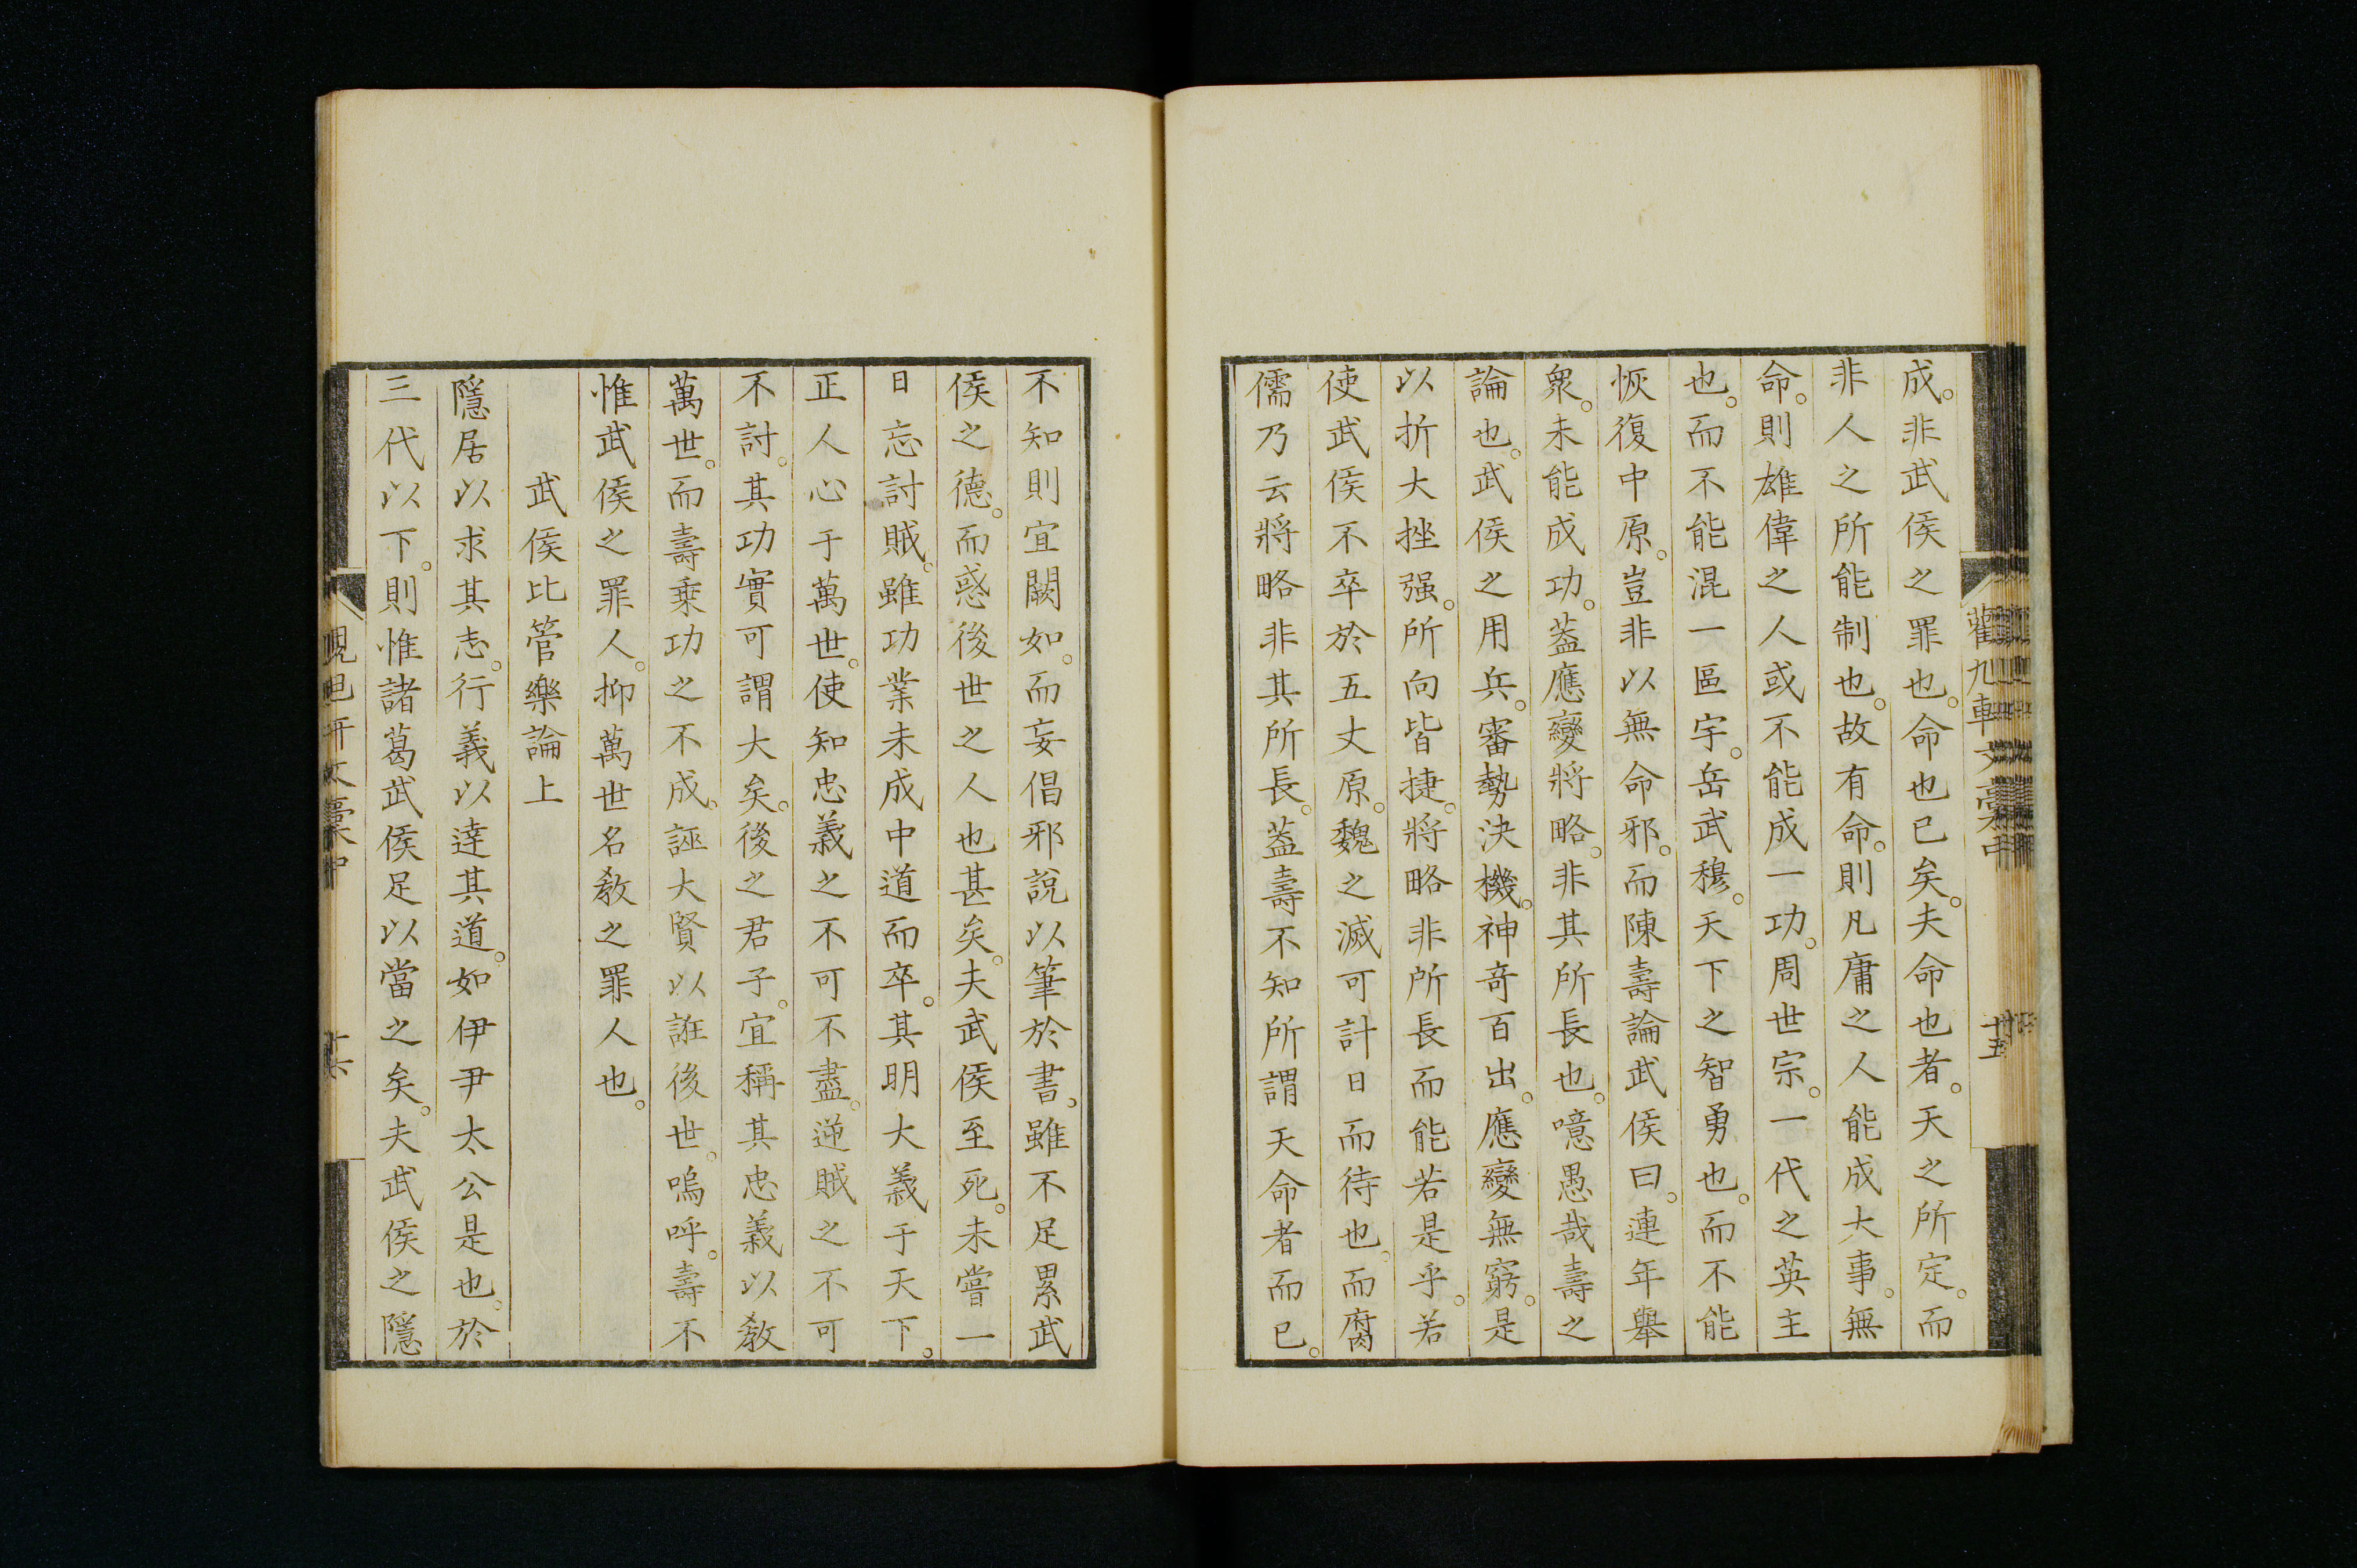 成。非武侯之罪也。命也已矣。夫命也者。天之所定。而
非人之所能制也。故有命。則凡庸之人能成大事。無
命。則雄偉之人或不能成一功。周世宗。一代之英主
也。而不能混一區宇。岳武穆。天下之智勇也。而不能
恢復中原。豈非以無命邪。而陳壽論武侯曰。連年舉
衆。未能成功。葢應變將略。非其所長也。噫愚哉壽之
論也。武侯之用兵。審勢決機。神奇百出。應變無窮。是
以折大挫强。所向皆捷。將略非所長而能若是乎。若
使武侯不卒於五丈原。魏之滅可計日而待也。而腐
儒乃云將略非其所長。葢壽不知所謂天命者而已。
不知則宜闕如。而妄倡邪說以筆於書。雖不足累武
侯之德。而惑後世之人也甚矣。夫武侯至死。未嘗一
日忘討賊。雖功業未成中道而卒。其明大義于天下。
正人心于萬世。使知忠義之不可不盡。逆賊之不可
不討。其功實可謂大矣。後之君子。宜稱其忠義以敎
萬世。而壽乗功之不成。誣大賢以誑後世。嗚呼。壽不
惟武侯之罪人。抑萬世名敎之罪人也。
武侯比管樂論上
隱居以求其志。行義以達其道。如伊尹太公是也。於
三代以下。則惟諸葛武侯足以當之矣。夫武侯之隱